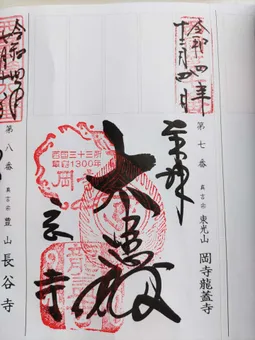 令和四年
十二月四日
第七番 真言宗 東光山 岡寺龍蓋寺
奉拝
大悲殿
西国三十三所
草創1300年
岡
寺
令和四年
第八番 真言宗 豊山 長谷寺